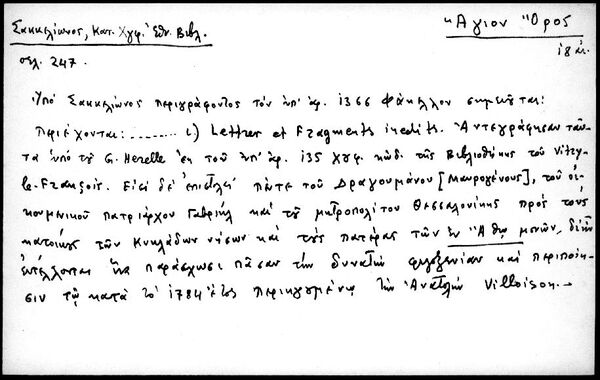 Σακκελίωνος, Κατ. Χγφ. Ἐθν. Βιβλ.
Ἅγιον Ὄρος
σελ. 247.
18 αἰ.
Ὑπὸ Σακκελίωνος περιγράφοντος τὸν ὑπ' ἀρ. 1366 φάκελλον σημειοῦται:
Περιέχονται: ........ ι) Lettres et Fragments inedits. Ἀντεγράφησαν ταῦ-
τα ὑπὸ τοῦ G. Herelle ἐκ τοῦ ὑπ' ἀρ. 135 χγφ. κώδ. τῆς Βιβλιοθήκης τοῦ Vitry-
le-François. Εἰσὶ δὲ ἐπιστολαὶ πέντε τοῦ Δραγουμάνου [Μαυρογένους], τοῦ οἰ-
κουμενικοῦ πατριάρχου Γαβριὴλ καὶ τοῦ μητροπολίτου Θεσσαλονίκης πρὸς τοὺς
κατοίκους τῶν Κυκλάδων νήσων καὶ τοὺς πατέρας τῶν ἐν Ἄθῳ μονῶν, δι' ὧν
ἐντέλλονται ἵνα παράσχωσι πᾶσαν τὴν δυνατὴν φιλοξενίαν καὶ περιποίη-
σιν τῷ κατὰ τὸ 1784 ἔτος περιηγουμένῳ τὴν Ἀνατολὴν Villoison.→